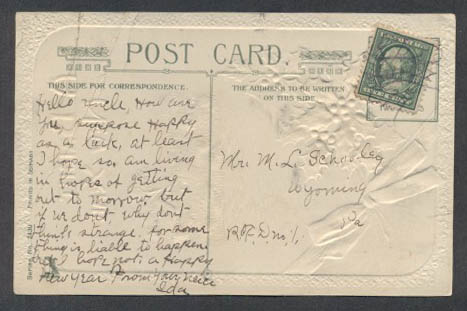 POST CARD.
THIS SIDE FOR CORRESPONDENCE.
THE ADDRESS TO BE WRITTEN
ON THIS SIDE
Hello uncle How are
you, suppose Happy
as a lark, at least
I hope so. am living
in hopes of getting
out to morrow. but
if we don't why dont
think strange. for some
thing is liable to happen
but I hope not. a Happy
New Year From Your Niece
Ida
Mr. M. L. Schooley
Wyoming
Pa
R.F.D. no. 1.
Printed in Germany